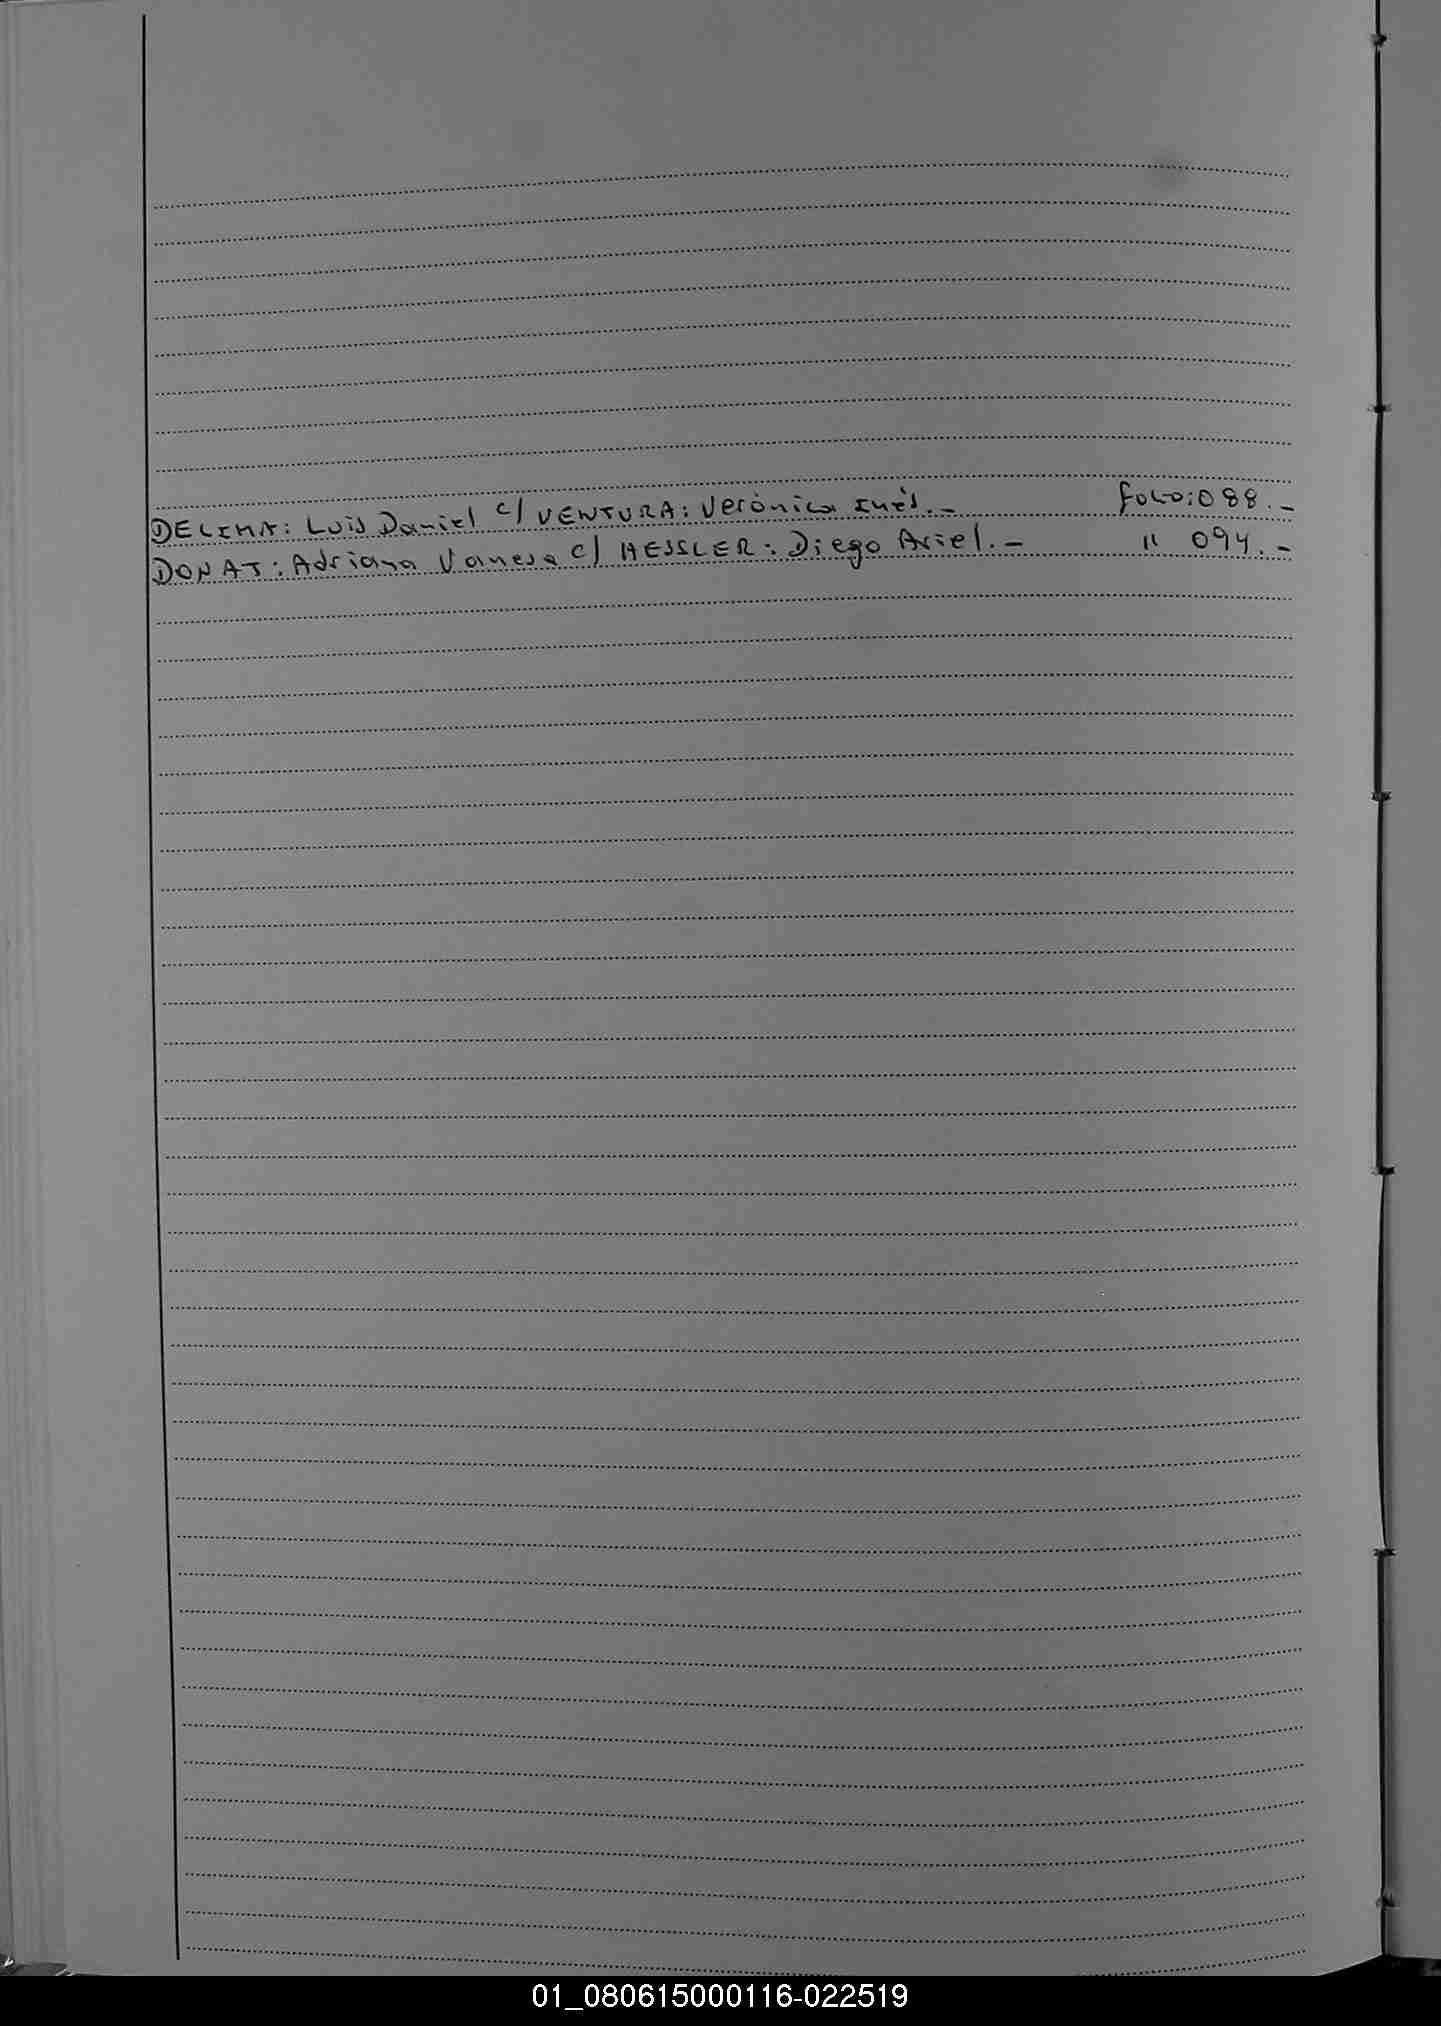 DELIMA: Luis Daniel c/ VENTURA: Verónica Inés.- folio: 088.-
DONAT: Adriana Vanesa c/ HESSLER: Diego Ariel.- " 094.-
01_080615000116-022519